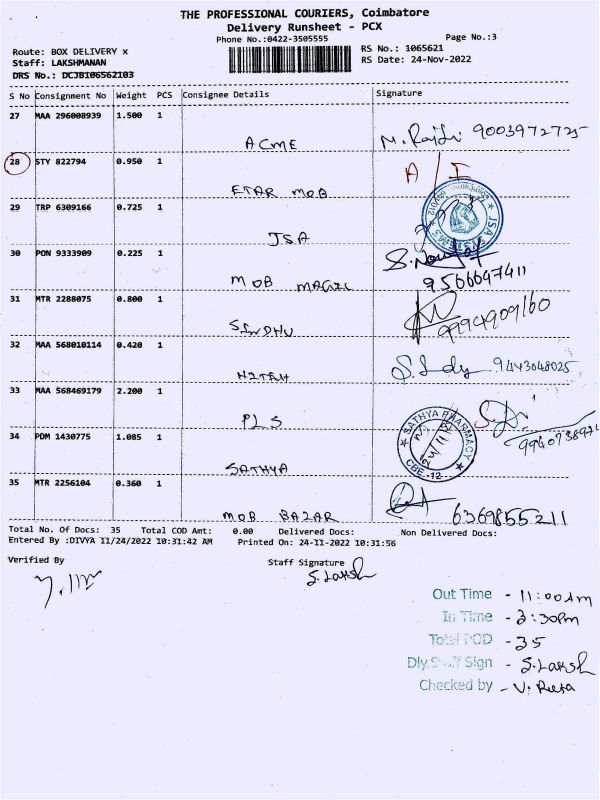 THE PROFESSIONAL COURIERS, Coimbatore
Delivery Runsheet - PCX
Phone No.:0422-3505555
Page No.:3
Route: BOX DELIVERY x
Staff: LAKSHMANAN
DRS No.: DCJB106562103
RS No.: 1065621
RS Date: 24-Nov-2022
S No Consignment No Weight PCS Consignee Details Signature
27 MAA 296008939 1.500 1
ACME 9003972725
28 STY 822794 0.950 1
ETAR MOB A/I
29 TRP 6309166 0.725 1
JSA
30 PON 9333909 0.225 1
MOB MAGIC 9566697411
31 MTR 2288075 0.800 1
SINDHU 9994909160
32 MAA 568010114 0.420 1
HITESH 9443048025
33 MAA 568469179 2.200 1
PLS
34 PDM 1430775 1.085 1
SATHYA
SATHYA PHARMACY
CBE-12
35 MTR 2256104 0.360 1
MOB BAZAR 6369855211
Total No. Of Docs: 35 Total COD Amt: 0.00 Delivered Docs: Non Delivered Docs:
Entered By :DIVYA 11/24/2022 10:31:42 AM Printed On: 24-11-2022 10:31:56
Verified By
Staff Signature
S. Laksh
Out Time - 11:00 Am
In Time - 3:30pm
Total POD - 35
Dly.Staff Sign - S. Laksh
Checked by -